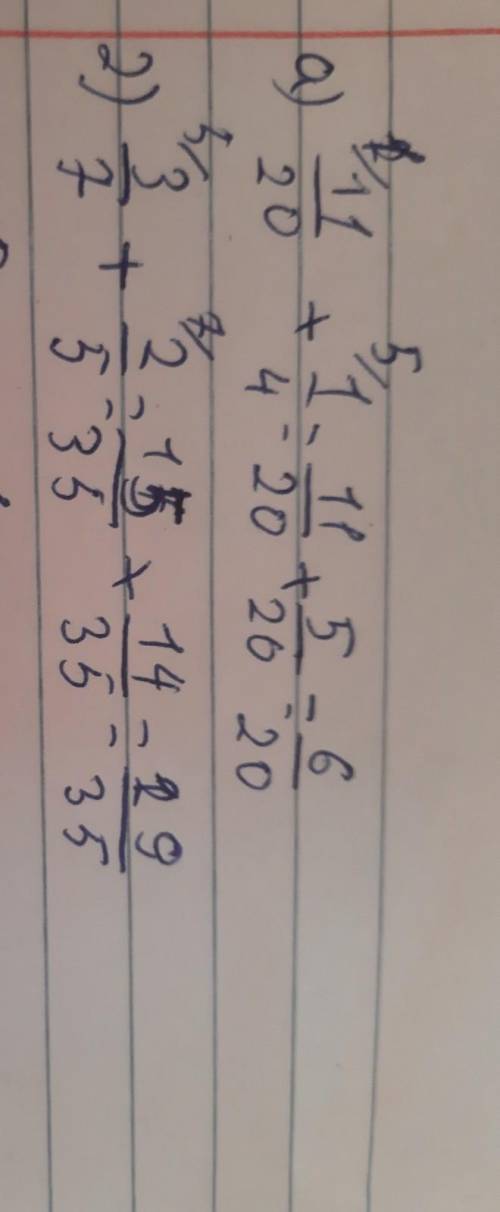 а) 1/ 11/20 + 5/ 1/4 = 11/20 + 5/20 = 6/20
2) 3/7 + 7/ 2/5 = 15/35 + 14/35 = 29/35